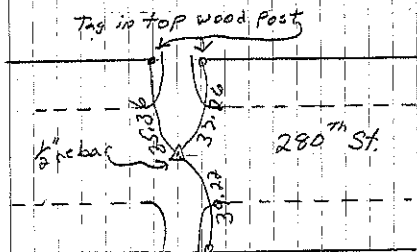 Tag in top wood post
35.36
33.26
1/2" rebar
280th St.
39.22